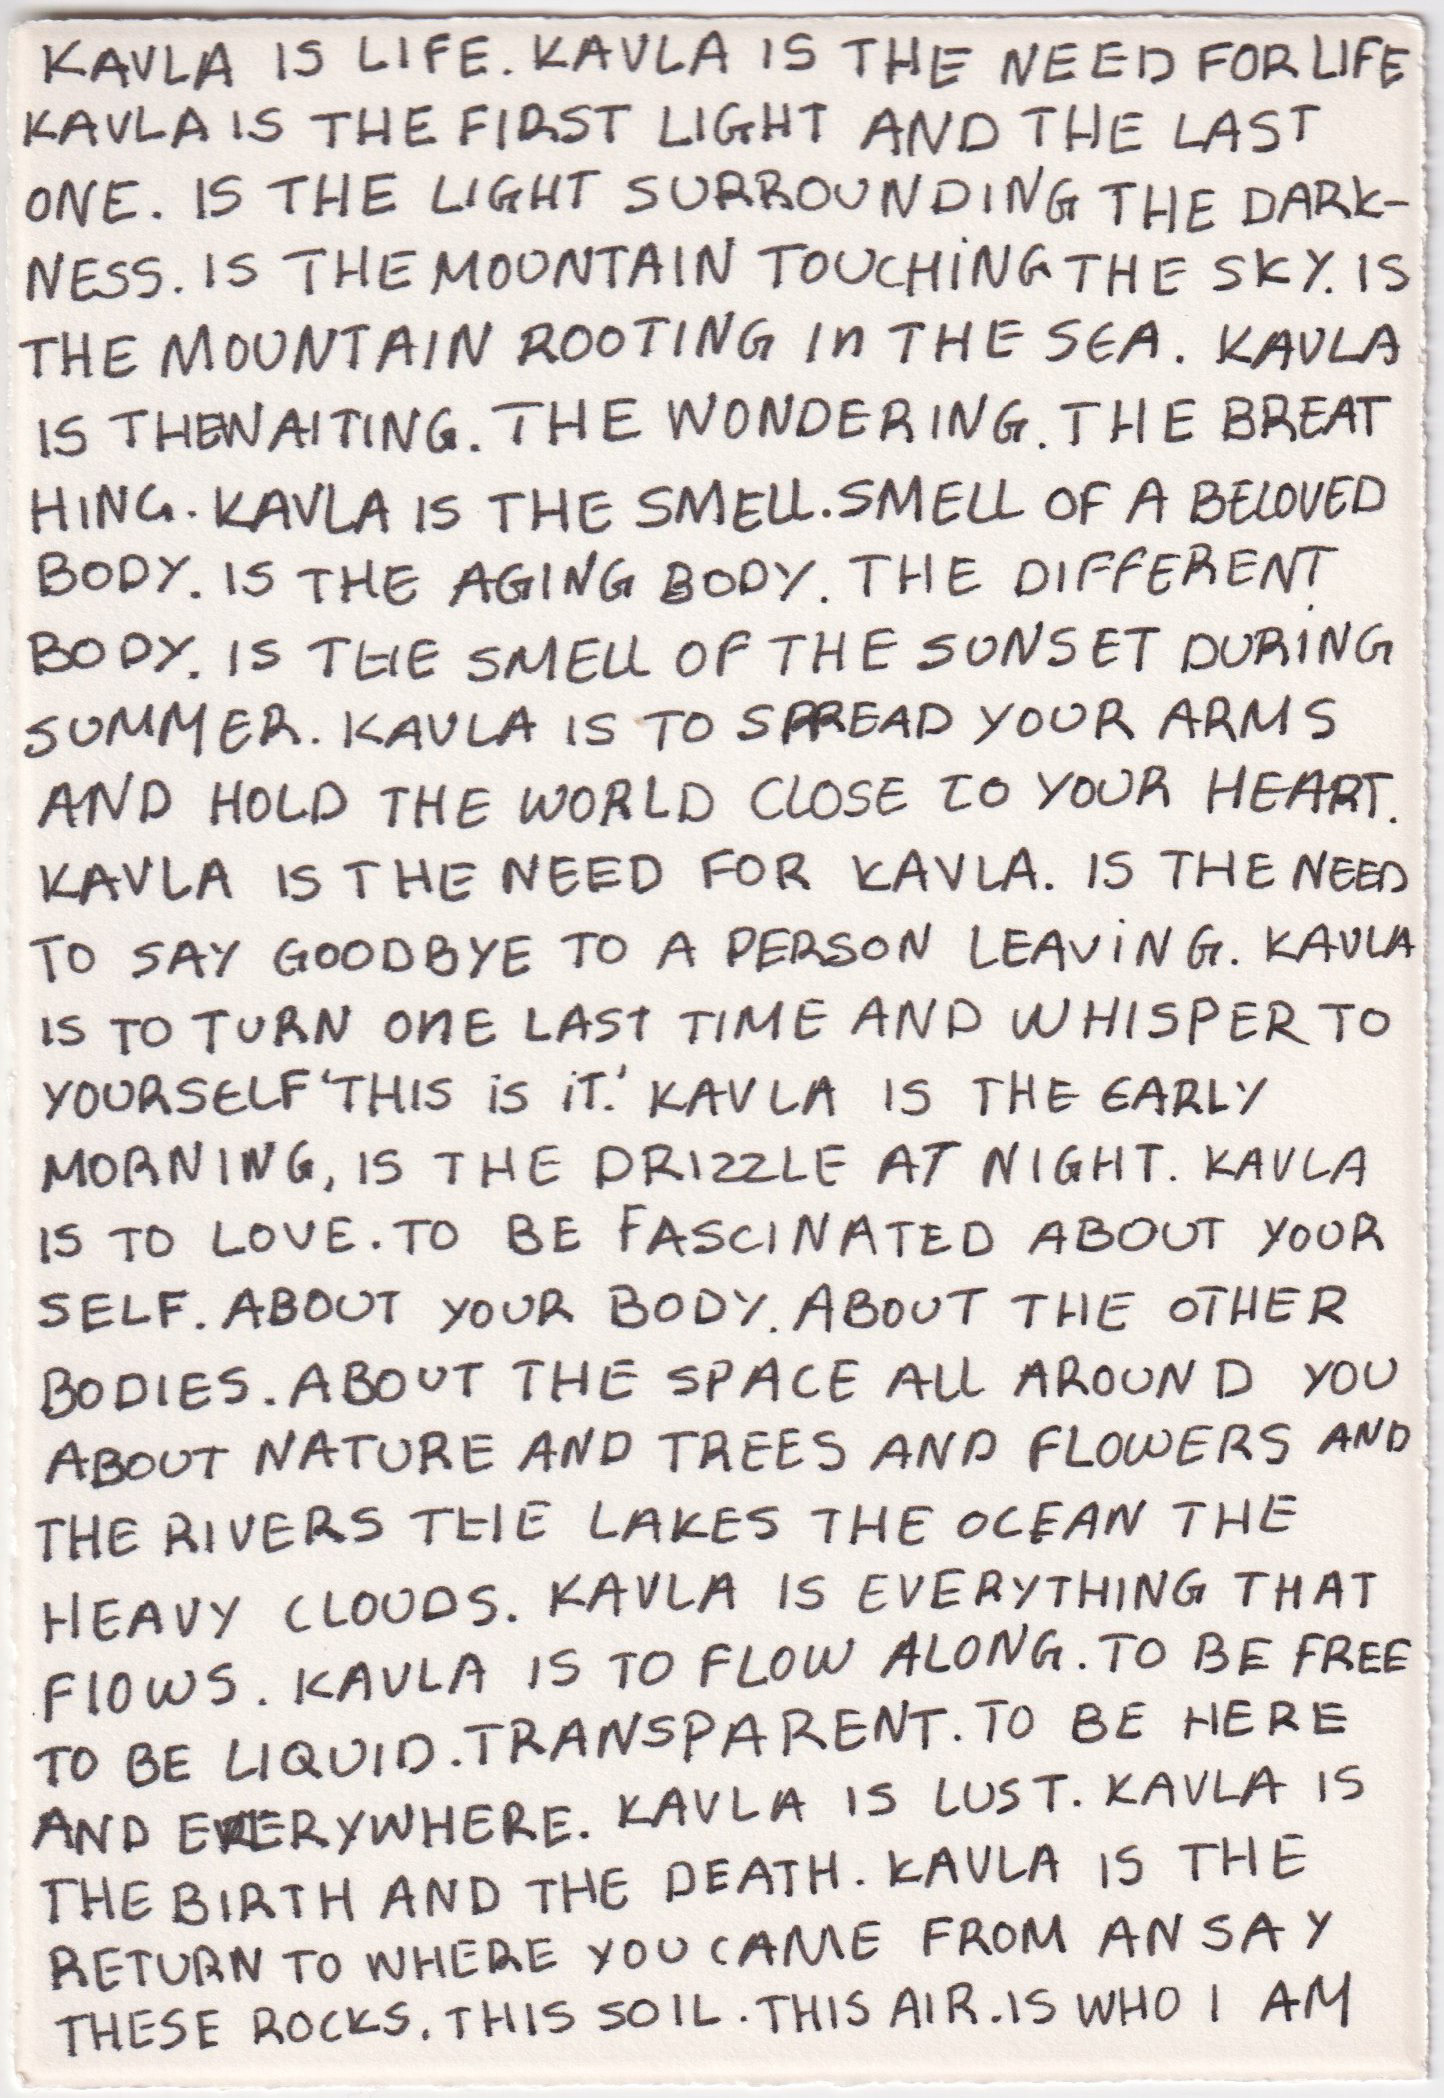 KAVLA IS LIFE. KAVLA IS THE NEED FOR LIFE
KAVLA IS THE FIRST LIGHT AND THE LAST
ONE. IS THE LIGHT SURROUNDING THE DARK-
NESS. IS THE MOUNTAIN TOUCHING THE SKY. IS
THE MOUNTAIN ROOTING In THE SEA. KAVLA
IS THE WAITING. THE WONDERING. THE BREAT
HING. KAVLA IS THE SMELL. SMELL OF A BELOVED
BODY. IS THE AGING BODY. THE DIFFERENT
BODY. IS THE SMELL OF THE SUNSET DURING
SUMMER. KAVLA IS TO SPREAD YOUR ARMS
AND HOLD THE WORLD CLOSE TO YOUR HEART.
KAVLA IS THE NEED FOR KAVLA. IS THE NEED
TO SAY GOODBYE TO A PERSON LEAVING. KAVLA
IS TO TURN ONE LAST TIME AND WHISPER TO
YOURSELF 'THIS is iT.' KAVLA IS THE EARLY
MORNING, IS THE DRIZZLE AT NIGHT. KAVLA
IS TO LOVE. TO BE FASCINATED ABOUT YOUR
SELF. ABOUT YOUR BODY. ABOUT THE OTHER
BODIES. ABOUT THE SPACE ALL AROUND YOU
ABOUT NATURE AND TREES AND FLOWERS AND
THE RIVERS THE LAKES THE OCEAN THE
HEAVY CLOUDS. KAVLA IS EVERYTHING THAT
FLOWS. KAVLA IS TO FLOW ALONG. TO BE FREE
TO BE LIQUID. TRANSPARENT. TO BE HERE
AND EVERYWHERE. KAVLA IS LUST. KAVLA IS
THE BIRTH AND THE DEATH. KAVLA IS THE
RETURN TO WHERE YOU CAME FROM AN SAY
THESE ROCKS. THIS SOIL. THIS AIR. IS WHO I AM